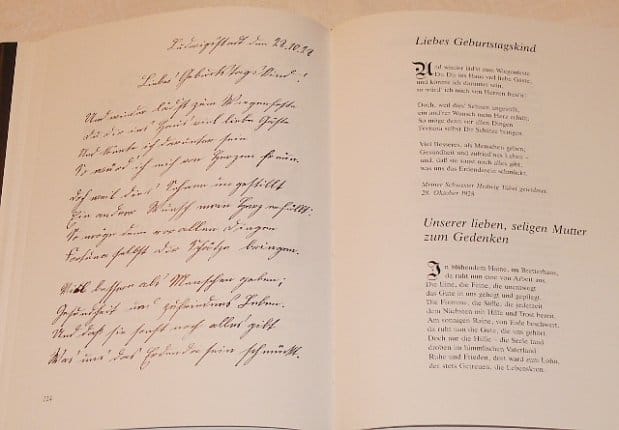 den 28.10.28
Liebes Geburtstagskind!
Und wieder lädst zum Wiegenfeste
Du dir ins Haus viel liebe Gäste
Und könnte ich darunter sein
So würd' ich mich von Herzen freuen.
Doch weil dies' Sehnen ungestillt
Ein andrer Wunsch mein Herz erfüllt:
So möge denn vor allen Dingen
Fortuna selbst Dir Schätze bringen.
Viel bessres als Menschen geben;
Gesundheit und zufriednes Leben.
Und daß sie sonst noch alles gibt
Was uns das Erdendasein schmückt.
224
Liebes Geburtstagskind
Und wieder lädst zum Wiegenfeste
Du Dir ins Haus viel liebe Gäste;
und könnte ich darunter sein,
so würd' ich mich von Herzen freu'n;
Doch, weil dies' Sehnen ungestillt,
ein and'rer Wunsch mein Herz erfüllt;
So möge denn vor allen Dingen
Fortuna selbst Dir Schätze bringen.
Viel Besseres, als Menschen geben;
Gesundheit und zufried'nes Leben –
und, daß sie sonst noch alles gibt,
was uns das Erdendasein schmückt.
Meiner Schwester Hedwig gewidmet,
28. Oktober 1928
Unserer lieben, seligen Mutter
zum Gedenken
In blühendem Haine, im Bretterhaus,
da ruht nun eine von Arbeit aus.
Die Eine, die Feine, die unentwegt
das Gute in uns gehegt und gepflegt.
Die Fromme, die Süße, die jederzeit
dem Nächsten mit Hilfe und Trost bereit.
Am sonnigen Raine, von Erde beschwert,
da ruht nun die Gute, die uns gehört.
Doch nur die Hülle – die Seele fand
droben im himmlischen Vaterland
Ruhe und Frieden, dort ward zum Lohn,
der stets Getreuen, die Lebenskron.